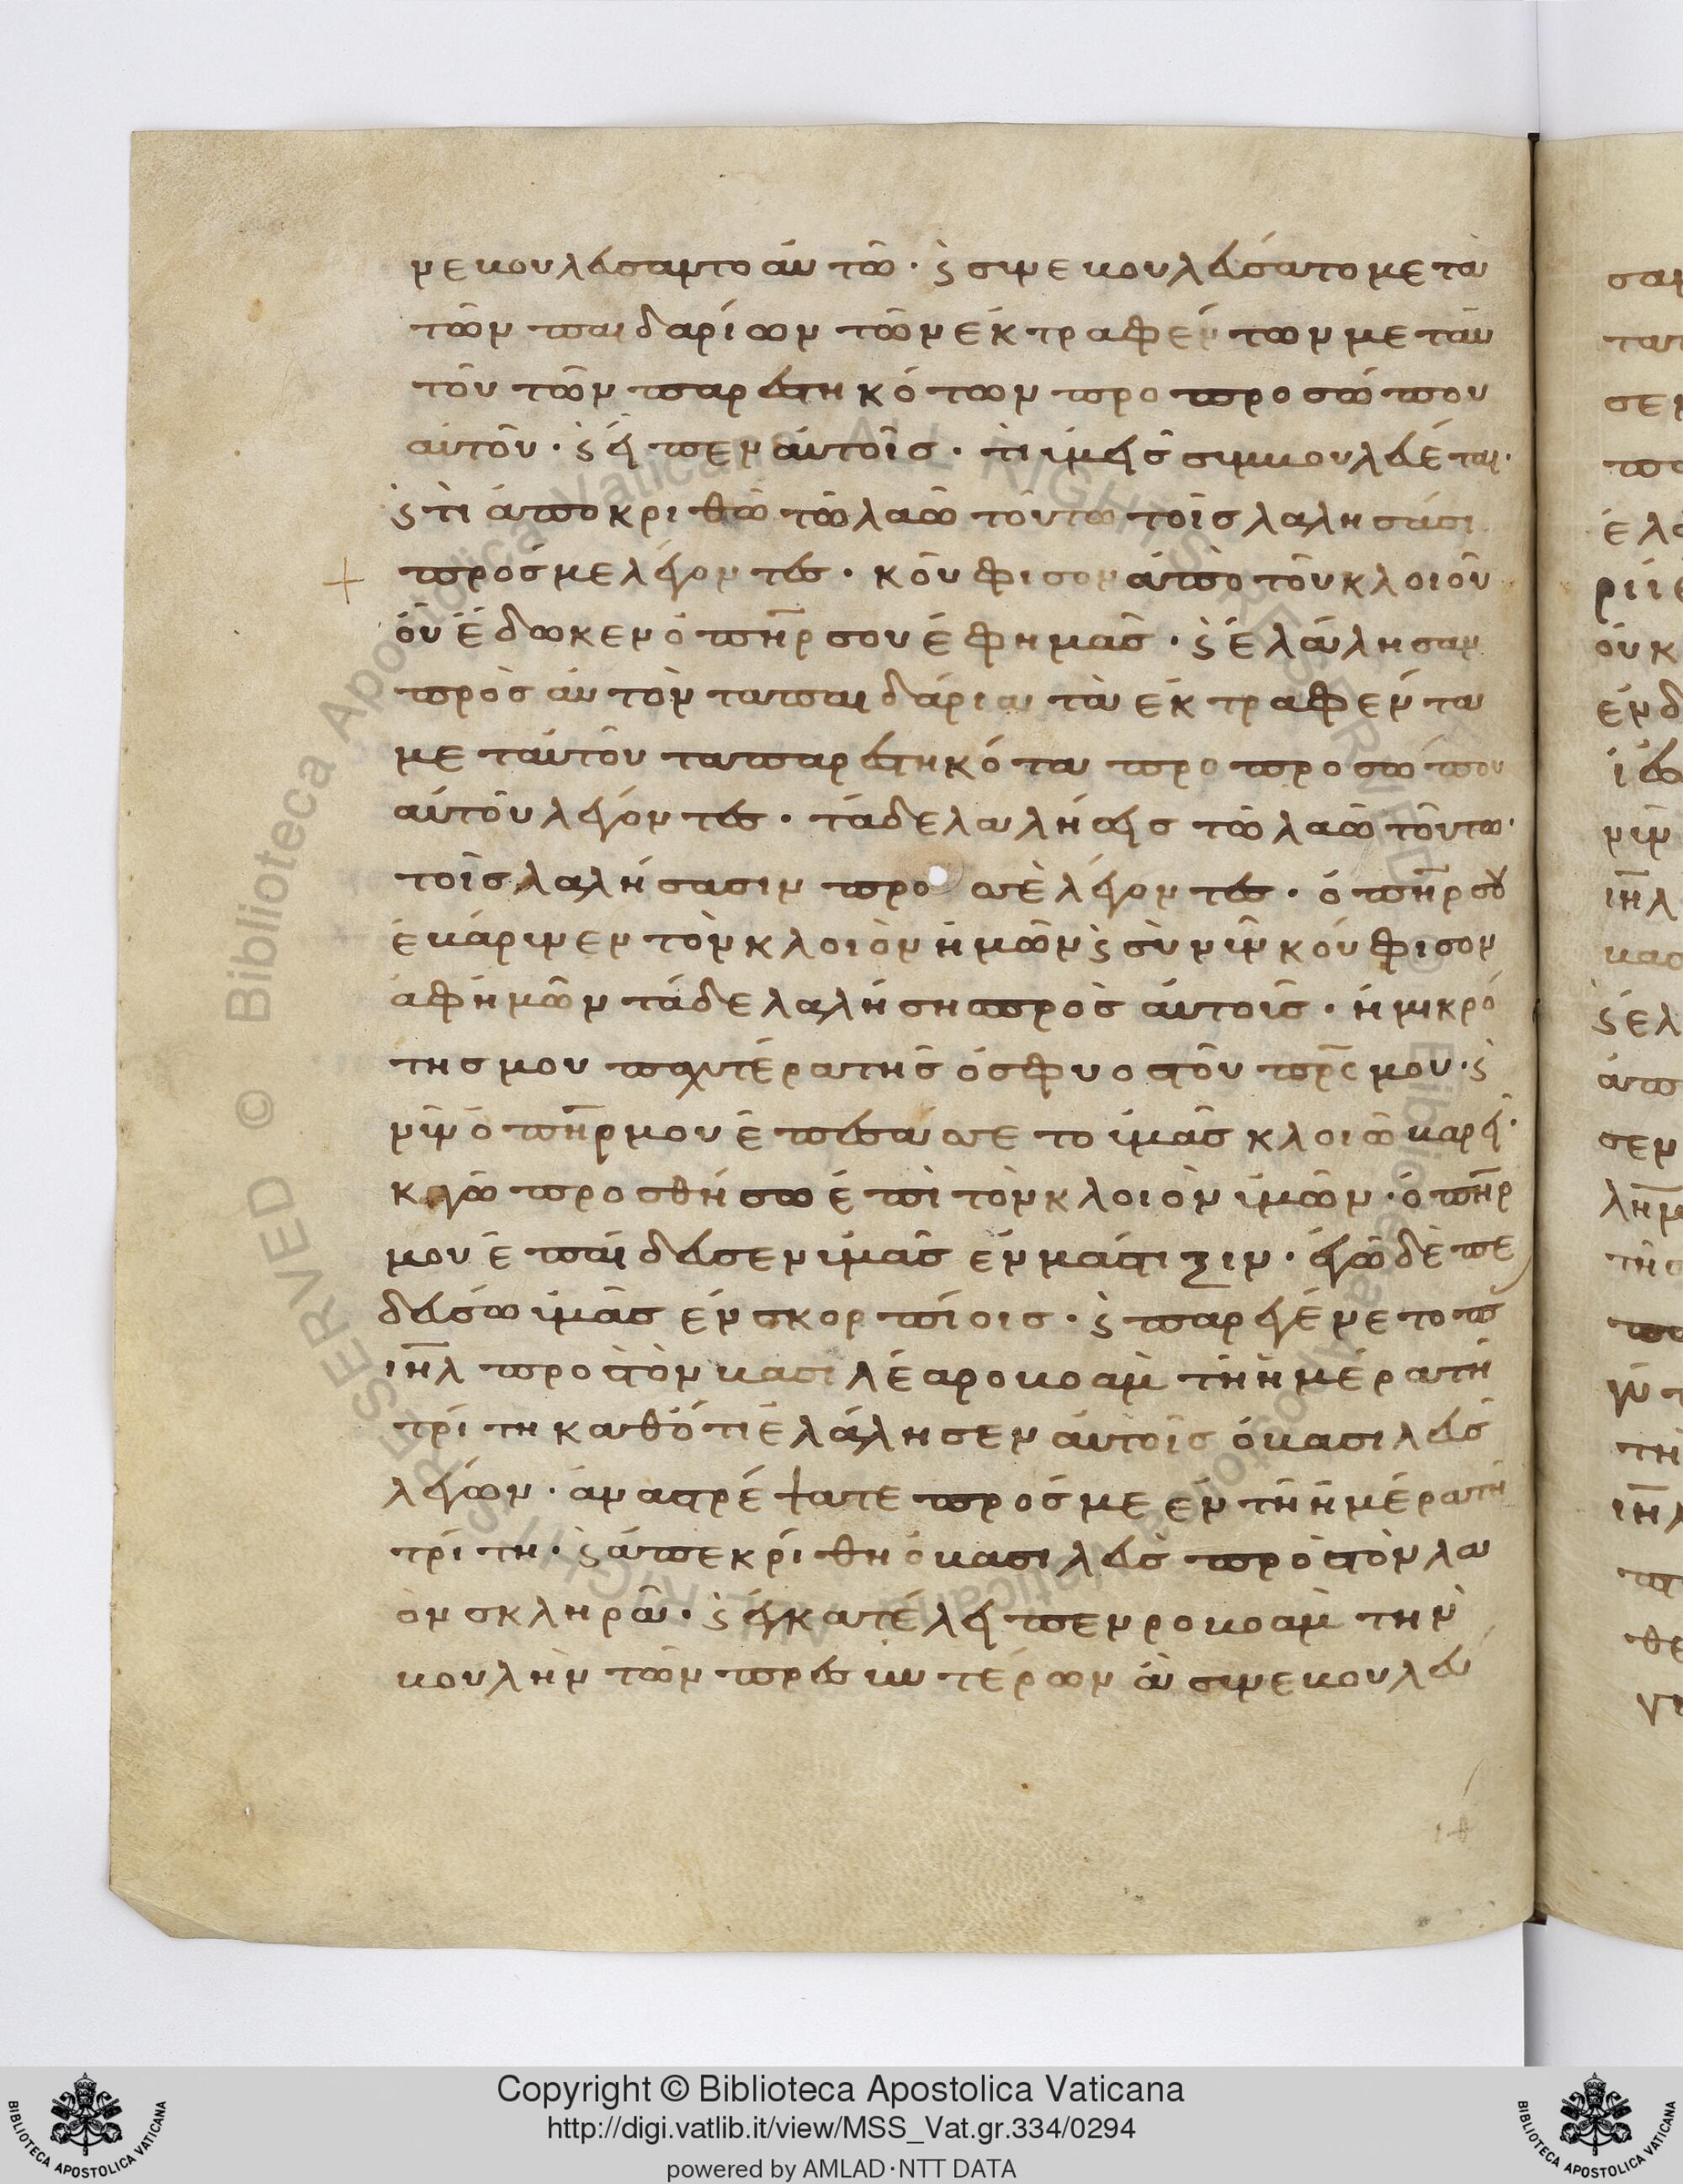 νεβουλεύσαντο αὐτῶ · ϗ συνεβουλεύσατο μετὰ
τῶν παιδαρίων τῶν ἐκτραφέντων μεταυ
τοῦ τῶν παρεστηκότων προ προσώπου
αὐτοῦ · ϗ εἶπεν αὐτοῖς · τὶ ὑμεῖς συμβουλεύεται ·
ϗ τὶ ἀποκριθῶ τῶ λαῶ τούτω τοῖς λαλήσασι
πρός με λέγοντες · κοῦφισον ἀπὸ τοῦ κλοιοῦ
οὗ ἔδωκεν ὁ πηρ σου ἐφημας · ϗ ἐλάλησαν
πρὸς αὐτὸν τα παιδάρια τὰ ἐκτραφέντα
μεταυτοῦ τα παρεστηκότα προ προσώπου
αὐτοῦ λέγοντες · τάδε λαλήσεις τῶ λαῶ τούτω ·
τοῖς λαλήσασιν προς σὲ λέγοντες · ὁ πηρ σου
ἐβάρυνεν τὸν κλοιὸν ἡμῶν ϗ σὺ νῦν κούφισον
ἀφημῶν τάδε λαλήση πρὸς αὐτοις · ἡ μικρό
της μου παχυτέρα της ὀσφυος τοῦ πρς μου · ϗ
νῦν ὁ πηρ μου ἐπεσάσσετο ὑμᾶς κλοιῶ βαρεῖ ·
κἀγῶ προσθήσω ἐπὶ τὸν κλοιὸν ὑμῶν · ὁ πηρ
μου ἐπαίδευσεν ὑμᾶς ἐν μάστιξιν · ἐγῶ δὲ πε
δεύσω ὑμᾶς ἐν σκορπίοις · ϗ παρεγένετο πᾶς
ιηλ προς τὸν βασιλέα ροβοαμ τῆ ἡμέρα τῆ
τρίτη καθότι ἐλάλησεν αὐτοῖς ὁ βασιλεύς
λέγων · ἀναστρέψατε πρός με ἐν τῆ ἡμέρα τῆ
τρίτη · ϗ ἀπεκρίθη ὁ βασιλεὺς πρὸς τὸν λα
ὸν σκληρᾶ · ϗ ἐγκατέλειπεν ροβοαμ τὴν
βουλὴν τῶν πρεσβυτέρων ἃ συνεβουλεύ